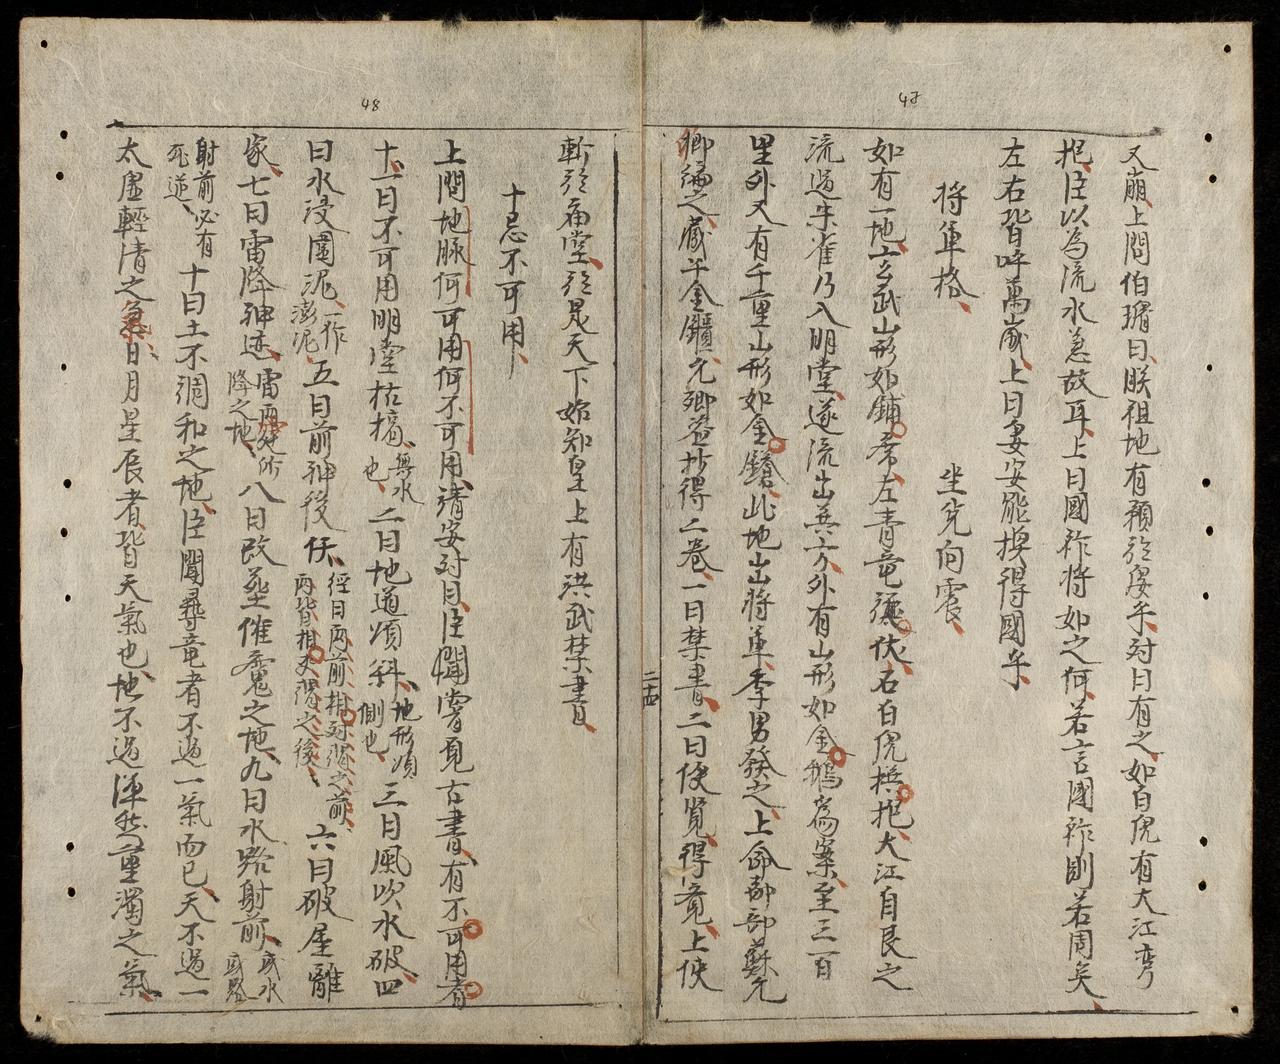 47
又崩上問伯瑨曰朕祖地有預於宴乎対曰有之如白虎有大江弯
抱臣以為流水急故耳上曰國祚將如之何若言國祚則若周矣
左右皆呼萬歲上曰宴安能換得國乎
將軍格 坐兌向震
如有一地玄武山形如鋪席左青竜德伏右白虎横抱大江自艮之
流過朱雀乃入明堂遂流出兵方外有山形如金鵝為案至三百
里外又有千重山形如金鎗此地出將軍季男發之上命部部蘇允
卿編之藏于金匱允卿盗抄得二卷一曰禁書二曰使覽得竟上使
二十四
48
斬於庙堂於是天下始知皇上有洪武禁書
十忌不可用
上問地脉何可用何不可用請安対曰臣聞嘗見古書有不可用者
十一曰不可用明堂枯槁無水也二曰地道傾斜地形傾側也三曰風吹水破四
曰水浸園泥一作澎泥五曰前神後伏經曰両前相対謂之前両背相夹謂之後六曰破屋離
家七曰雷降神迹雷両处術降之地八曰改塟催鬼之地九曰水路射前或水或路
射前必有死逆十曰土不調和之地臣聞尋竜者不過一氣而已天不過一
太虛輕清之急日月星辰者皆天氣也地不過渾然重濁之氣